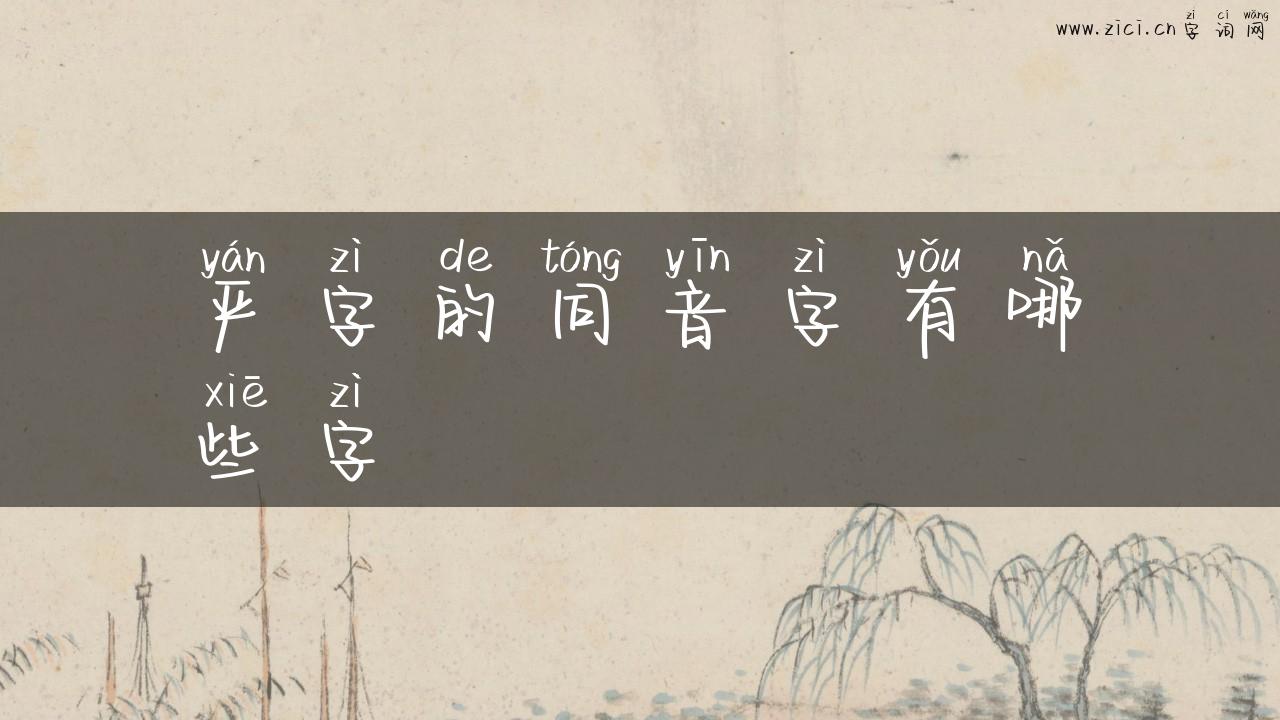 zì cí wǎng
www.zici.cn 字词网
yán zì de tóng yīn zì yǒu nǎ
严字的同音字有哪
xiē zì
些字